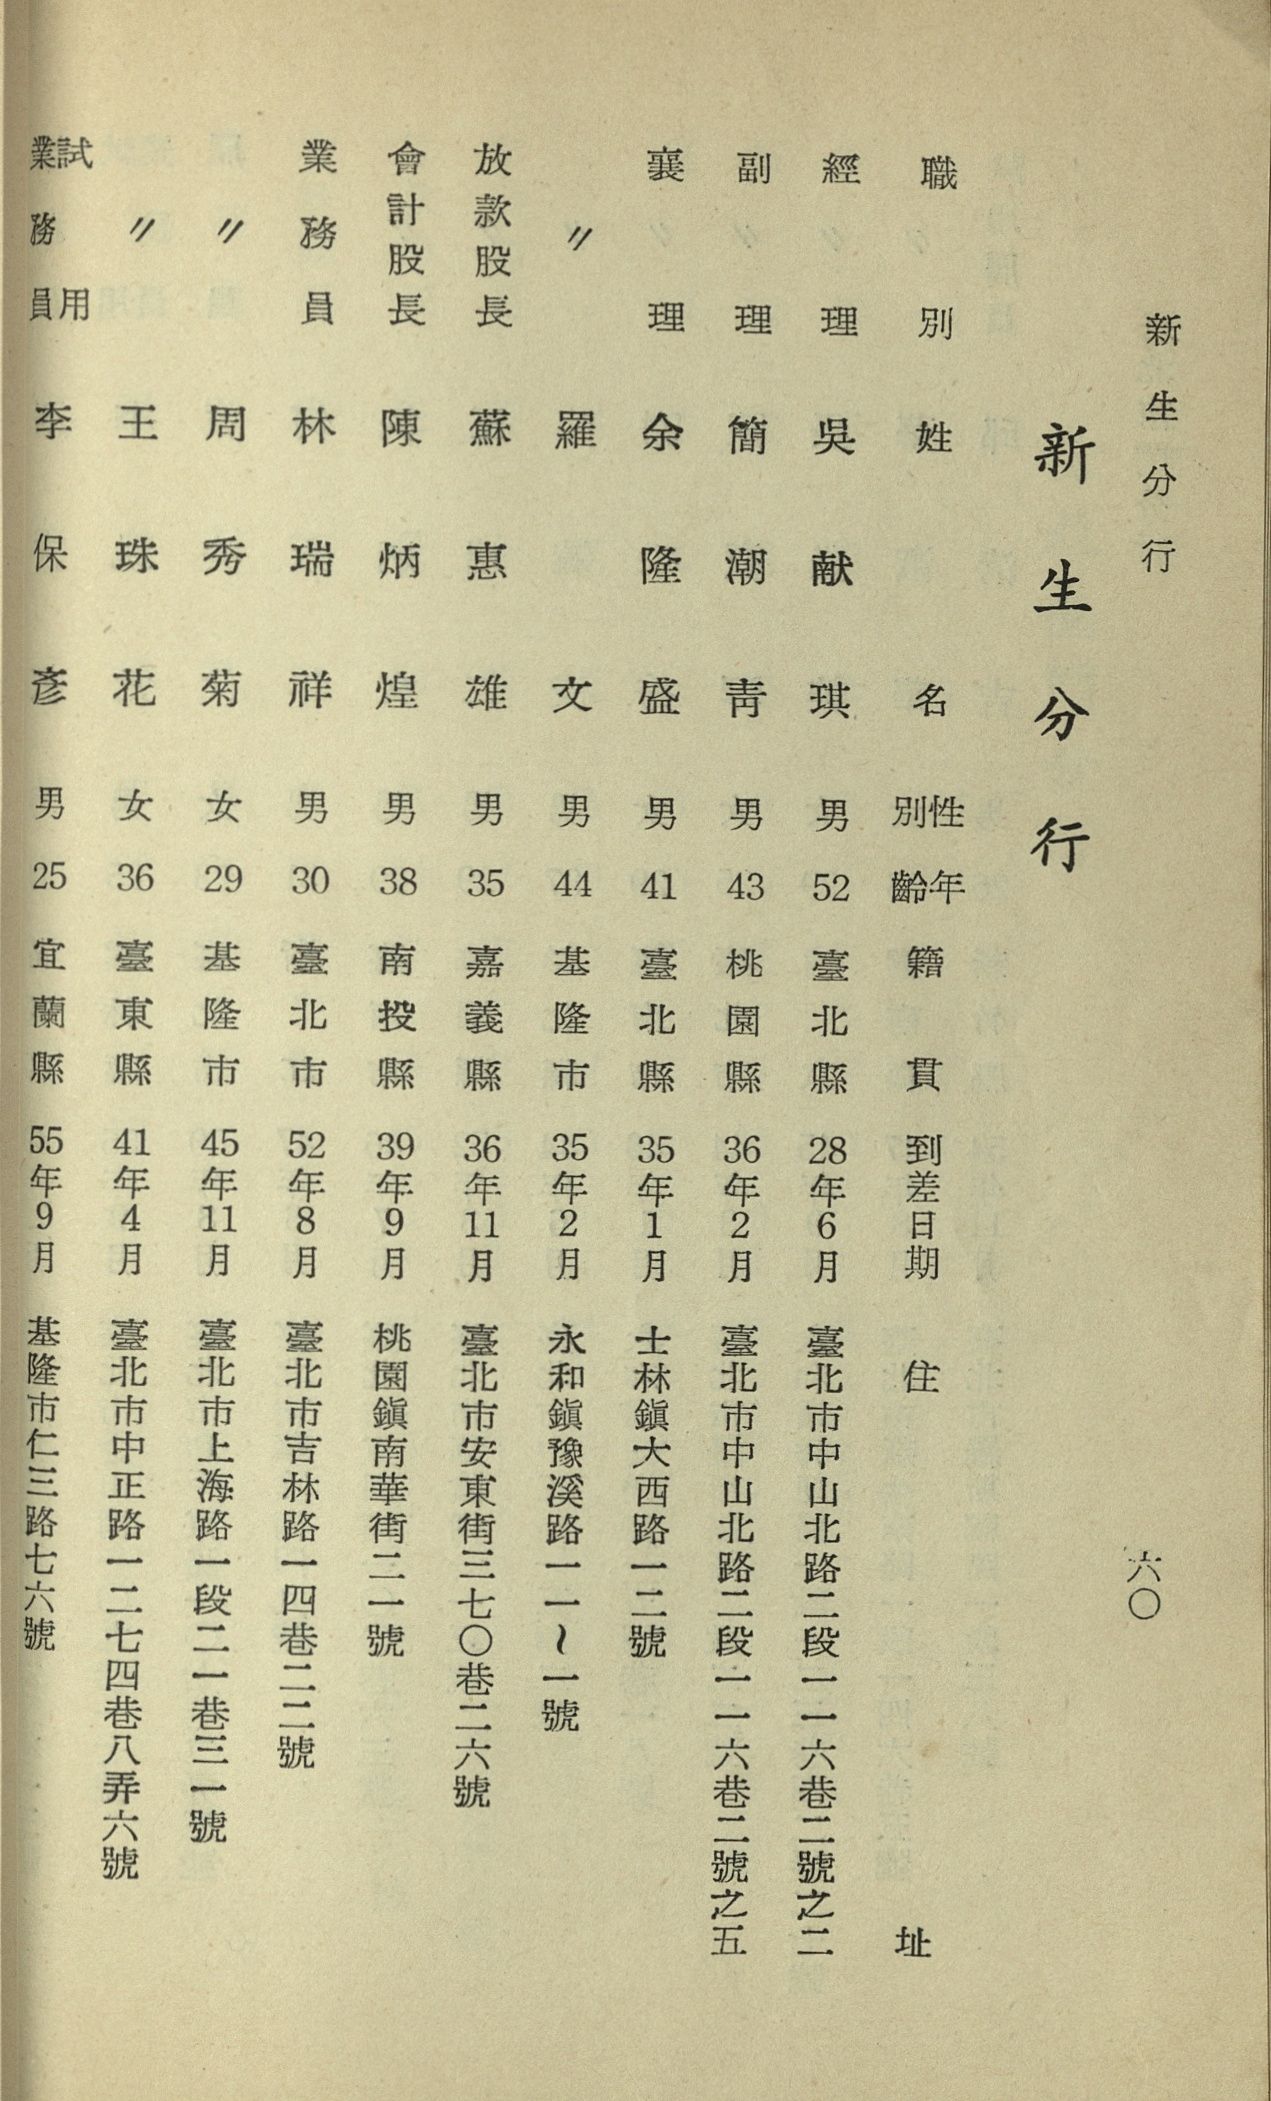 新生分行
六〇
新生分行
職別 姓名 性別 年齡 籍貫 到差日期 住址
經理 吳献琪 男 52 臺北縣 28年6月 臺北市中山北路二段一一六巷二號之二
副理 簡潮靑 男 43 桃園縣 36年2月 臺北市中山北路二段一一六巷二號之五
襄理 余隆盛 男 41 臺北縣 35年1月 士林鎭大西路一二號
〃 羅文 男 44 基隆市 35年2月 永和鎭豫溪路一一~一號
放款股長 蘇惠雄 男 35 嘉義縣 36年11月 臺北市安東街三七〇巷二六號
會計股長 陳炳煌 男 38 南投縣 39年9月 桃園鎭南華街二一號
業務員 林瑞祥 男 30 臺北市 52年8月 臺北市吉林路一四巷二二號
〃 周秀菊 女 29 基隆市 45年11月 臺北市上海路一段二一巷三一號
〃 王珠花 女 36 臺東縣 41年4月 臺北市中正路一二七四巷八弄六號
試用業務員 李保彥 男 25 宜蘭縣 55年9月 基隆市仁三路七六號